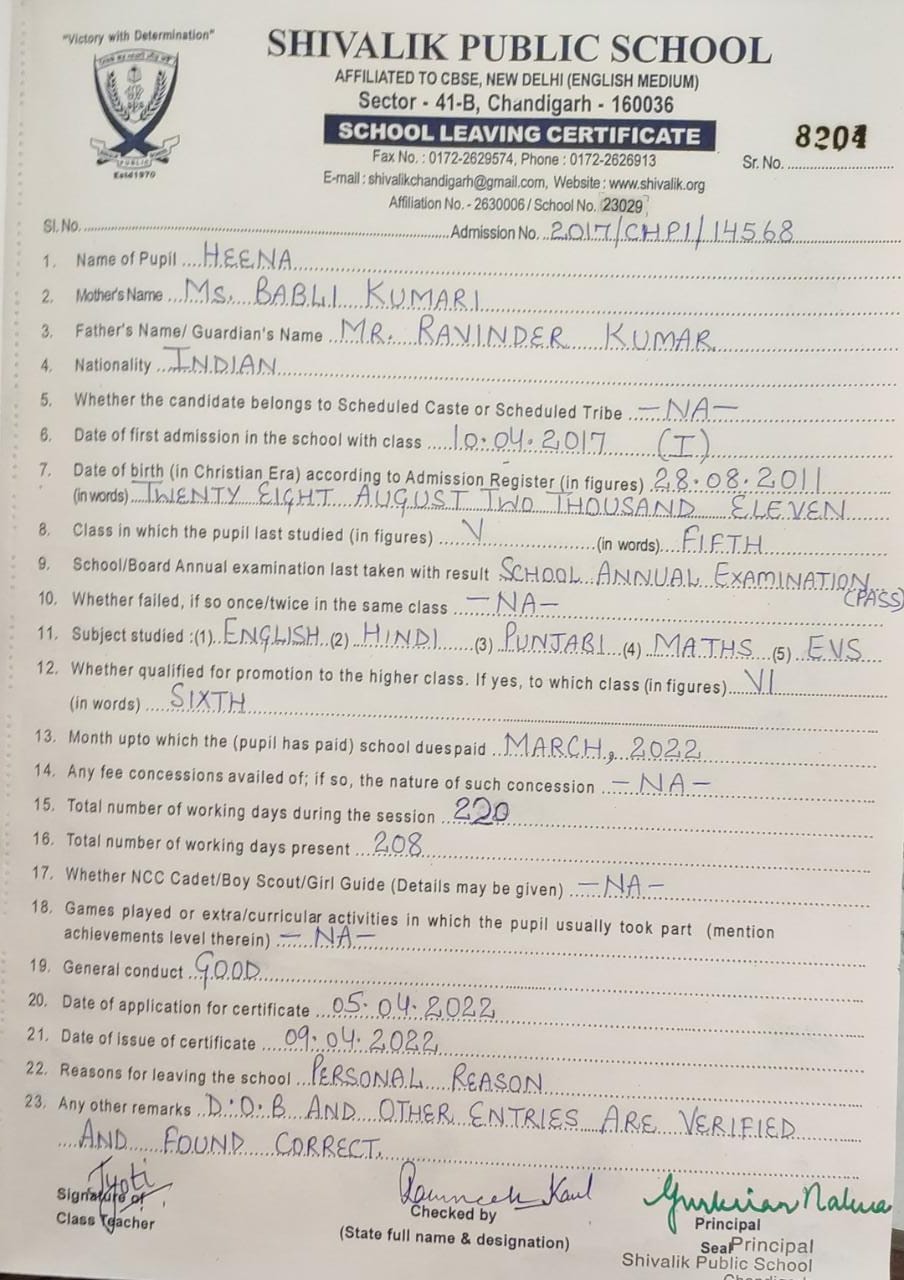 "Victory with Determination"
SHIVALIK PUBLIC SCHOOL
AFFILIATED TO CBSE, NEW DELHI (ENGLISH MEDIUM)
Sector - 41-B, Chandigarh - 160036
SCHOOL LEAVING CERTIFICATE
8204
Fax No. : 0172-2629574, Phone : 0172-2626913
Sr. No.
E-mail : shivalikchandigarh@gmail.com, Website : www.shivalik.org
PUBLIC
Estd 1970
Affiliation No. - 2630006 / School No. 23029
Sl. No. Admission No. 2017/CHP1/14568
1. Name of Pupil HEENA
2. Mother's Name MS. BABLI KUMARI
3. Father's Name/ Guardian's Name MR. RAVINDER KUMAR
4. Nationality INDIAN
5. Whether the candidate belongs to Scheduled Caste or Scheduled Tribe -NA-
6. Date of first admission in the school with class 10.04.2017 (I)
7. Date of birth (in Christian Era) according to Admission Register (in figures) 28.08.2011
(in words) TWENTY EIGHT AUGUST TWO THOUSAND ELEVEN
8. Class in which the pupil last studied (in figures) V (in words) FIFTH
9. School/Board Annual examination last taken with result SCHOOL ANNUAL EXAMINATION
(PASS)
10. Whether failed, if so once/twice in the same class -NA-
11. Subject studied :(1) ENGLISH (2) HINDI (3) PUNJABI (4) MATHS (5) EVS
12. Whether qualified for promotion to the higher class. If yes, to which class (in figures) VI
(in words) SIXTH
13. Month upto which the (pupil has paid) school duespaid MARCH, 2022
14. Any fee concessions availed of; if so, the nature of such concession -NA-
15. Total number of working days during the session 220
16. Total number of working days present 208
17. Whether NCC Cadet/Boy Scout/Girl Guide (Details may be given) -NA-
18. Games played or extra/curricular activities in which the pupil usually took part (mention
achievements level therein) -NA-
19. General conduct GOOD
20. Date of application for certificate 05.04.2022
21. Date of issue of certificate 09.04.2022
22. Reasons for leaving the school PERSONAL REASON
23. Any other remarks D.O.B AND OTHER ENTRIES ARE VERIFIED
AND FOUND CORRECT.
Jyoti
Signature of
Class Teacher
Kaul
Checked by
(State full name & designation)
Principal
Seal Principal
Shivalik Public School